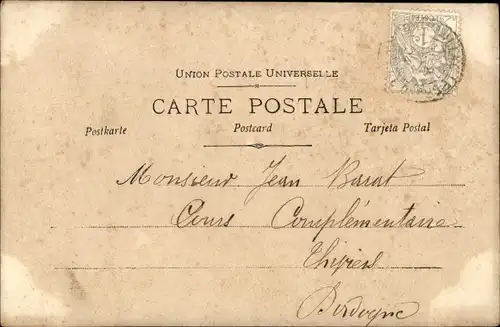 UNION POSTALE UNIVERSELLE
CARTE POSTALE
Postkarte Postcard Tarjeta Postal
Monsieur Jean Barat
Cours Complémentaire
Thiviers
Dordogne